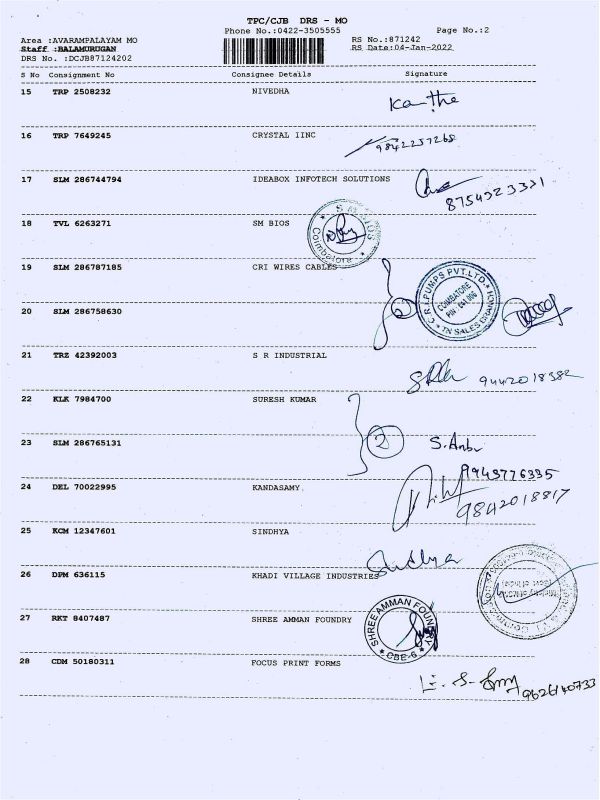 TPC/CJB DRS - MO
Phone No.:0422-3505555 Page No.:2
Area :AVARAMPALAYAM MO RS No.:871242
Staff :BALAMURUGAN RS Date:04-Jan-2022
DRS No. :DCJB87124202
S No Consignment No Consignee Details Signature
15 TRP 2508232 NIVEDHA
16 TRP 7649245 CRYSTAL IINC
9842237268
17 SLM 286744794 IDEABOX INFOTECH SOLUTIONS
8754923331
18 TVL 6263271 SM BIOS
SM BIOS Coimbatore
19 SLM 286787185 CRI WIRES CABLES
C.R.I.PUMPS PVT.LTD.
COIMBATORE
TN SALES BRANCH
2
20 SLM 286758630
21 TRZ 42392003 S R INDUSTRIAL
9442018382
22 KLK 7984700 SURESH KUMAR
2 S.Anbu
23 SLM 286765131
9943776335
24 DEL 70022995 KANDASAMY
9842018817
25 KCM 12347601 SINDHYA
26 DPM 636115 KHADI VILLAGE INDUSTRIES
27 RKT 8407487 SHREE AMMAN FOUNDRY
SHREE AMMAN FOUNDRY CBE-6
28 CDM 50180311 FOCUS PRINT FORMS
9626140733